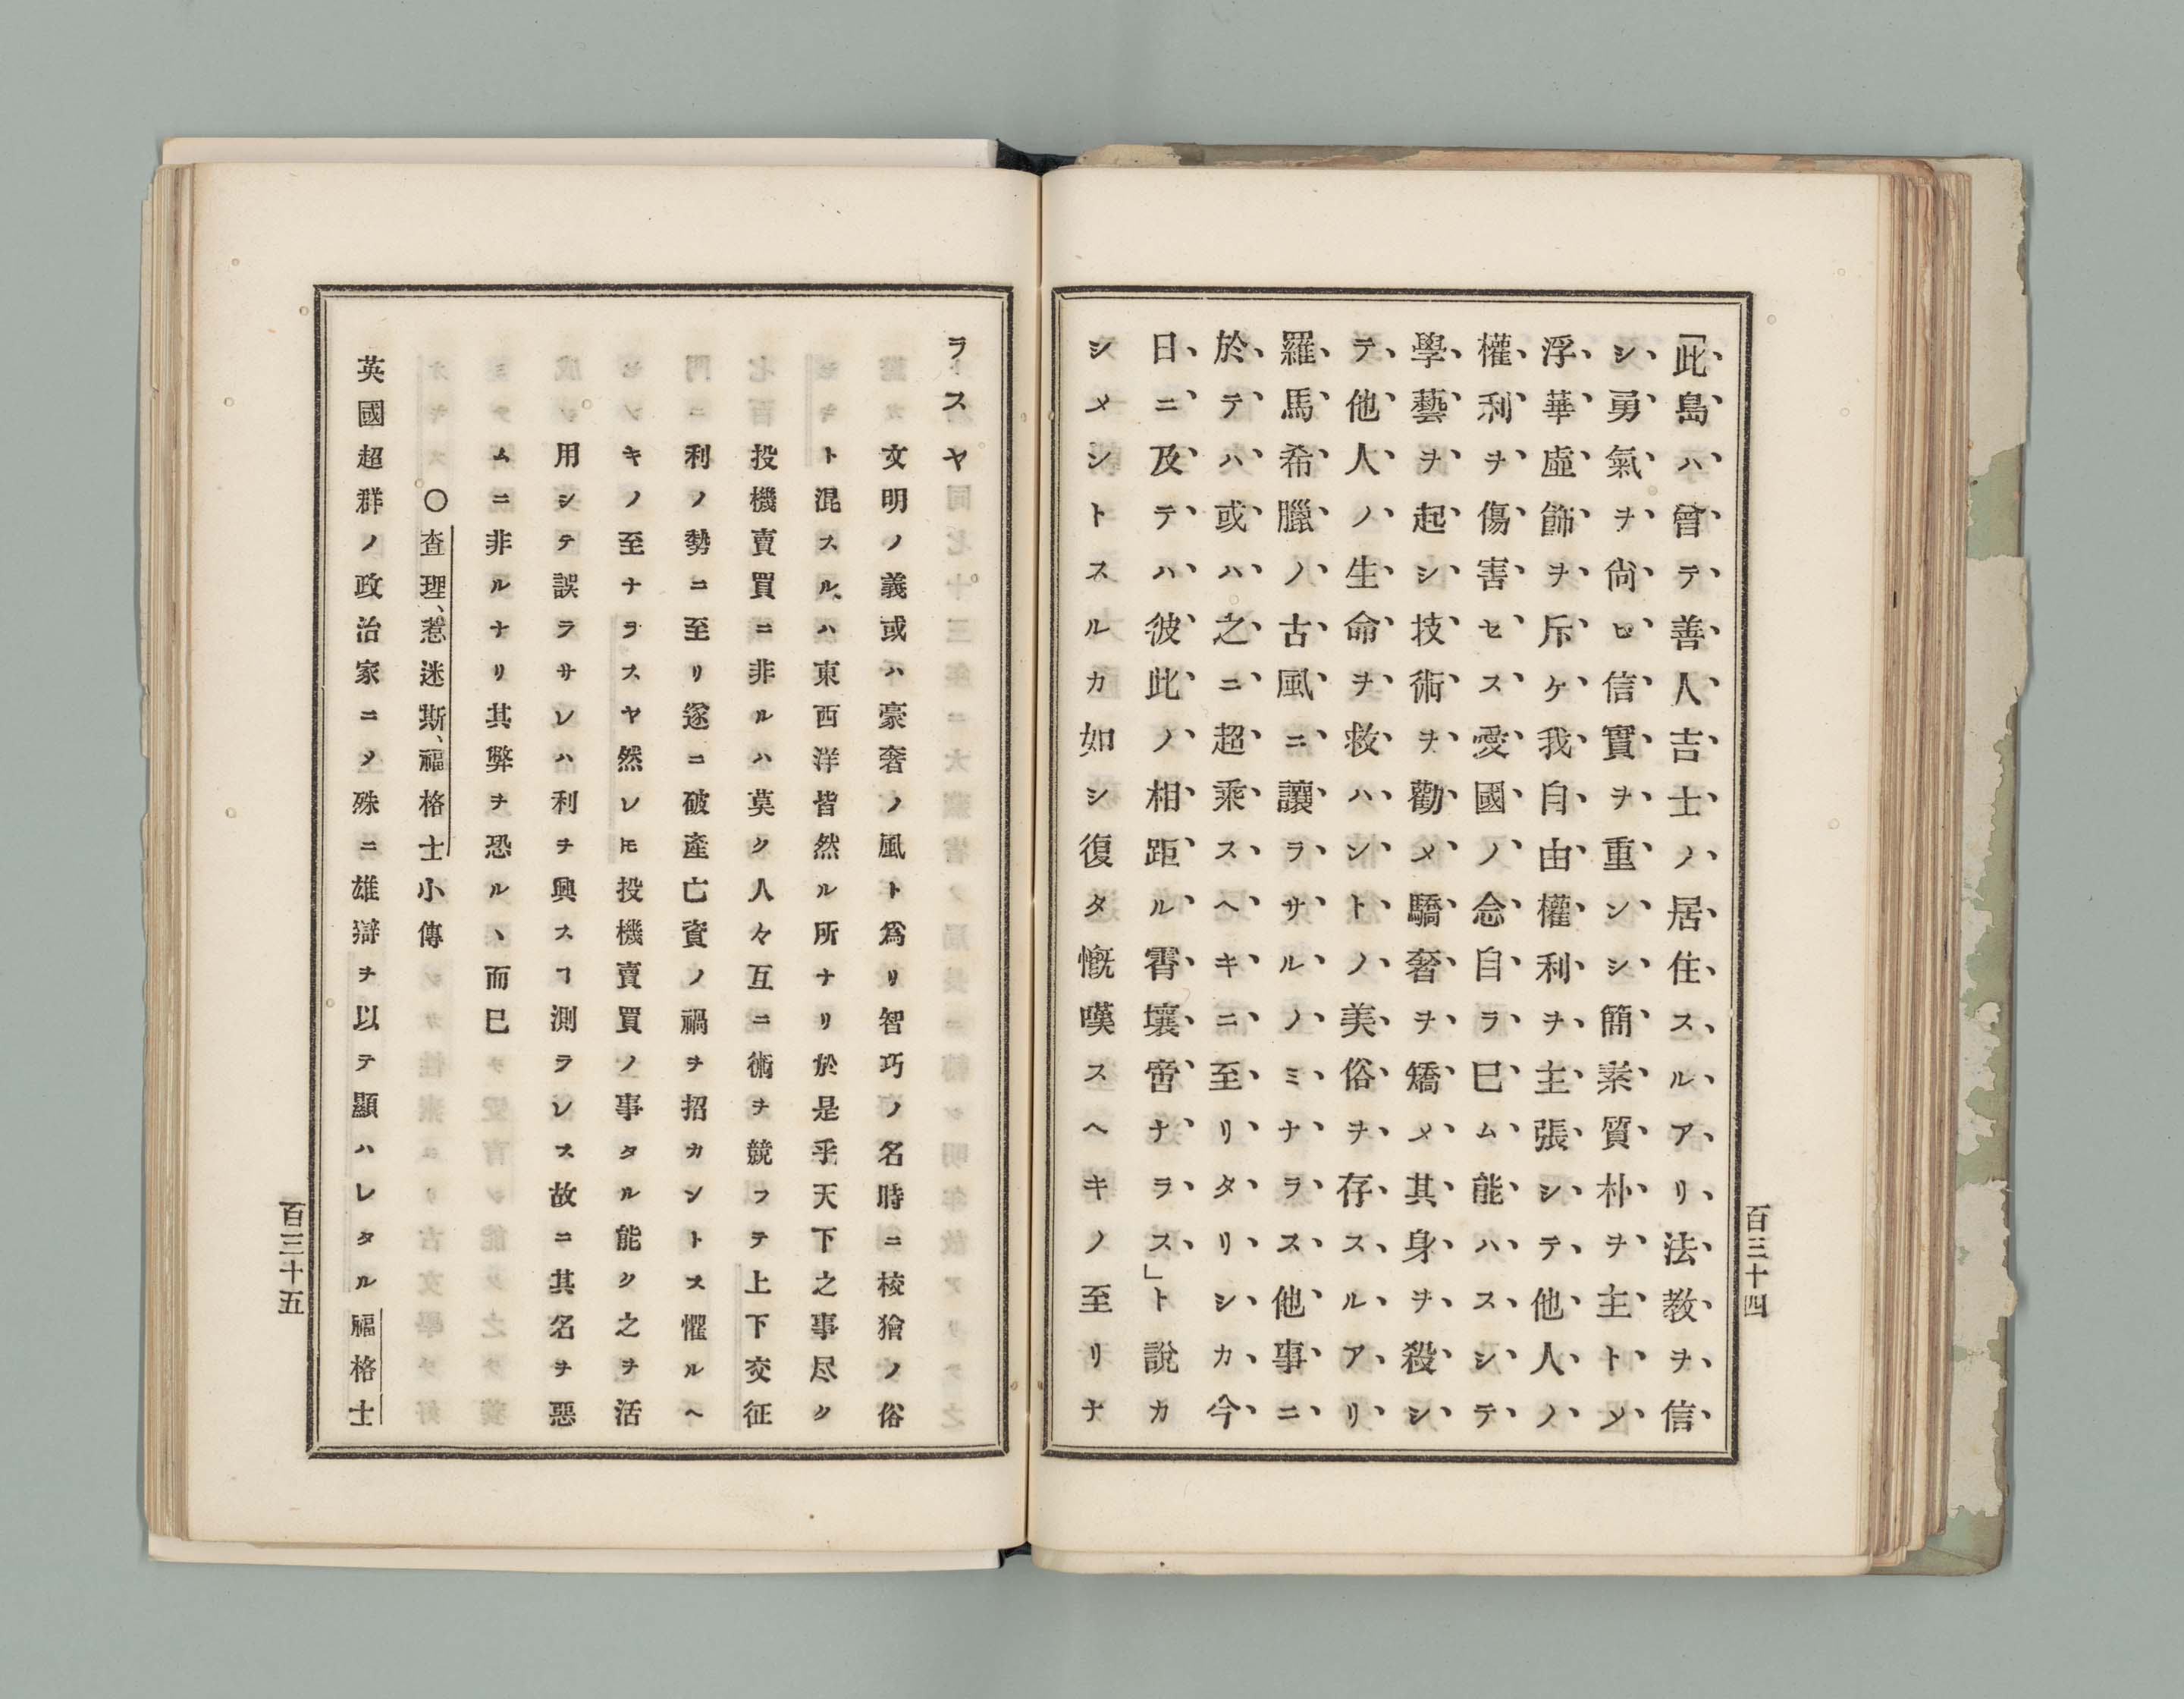 「此島ハ曾テ善人吉士ノ居住スルアリ法教ヲ信
シ勇氣ヲ尙ヒ信實ヲ重ンシ簡素質朴ヲ主トメ
浮華虛飾ヲ斥ケ我自由權利ヲ主張シテ他人ノ
權利ヲ傷害セス愛國ノ念自ラ已ム能ハスシテ
學藝ヲ起シ技術ヲ勸メ驕奢ヲ矯メ其身ヲ殺シ
テ他人ノ生命ヲ救ハントノ美俗ヲ存スルアリ
羅馬希臘ノ古風ニ讓ラサルノミナラス他事ニ
於テハ或ハ之ニ超乘スヘキニ至リタリシカ今
日ニ及テハ彼此ノ相距ル霄壤啻ナラス」ト說カ
シメントスルカ如シ復タ慨嘆スヘキノ至リナ
百三十四
ラスヤ
文明ノ義或ハ豪奢ノ風ト爲リ智巧ノ名時ニ狡獪ノ俗
ト混スルハ東西洋皆然ル所ナリ於是乎天下之事尽ク
投機賣買ニ非ルハ莫ク人々互ニ術ヲ競フテ上下交征
利ノ勢ニ至リ遂ニ破產亡資ノ禍ヲ招カントス懼ルヘ
キノ至ナラスヤ然レㇳモ投機賣買ノ事タル能ク之ヲ活
用シテ誤ラサレハ利ヲ興スヿ測ラレス故ニ其名ヲ惡
ムニ非ルナリ其弊ヲ恐ルヽ而已
〇查理、惹迷斯、福格士小傳
英國超群ノ政治家ニメ殊ニ雄辯ヲ以テ顯ハレタル福格士
百三十五